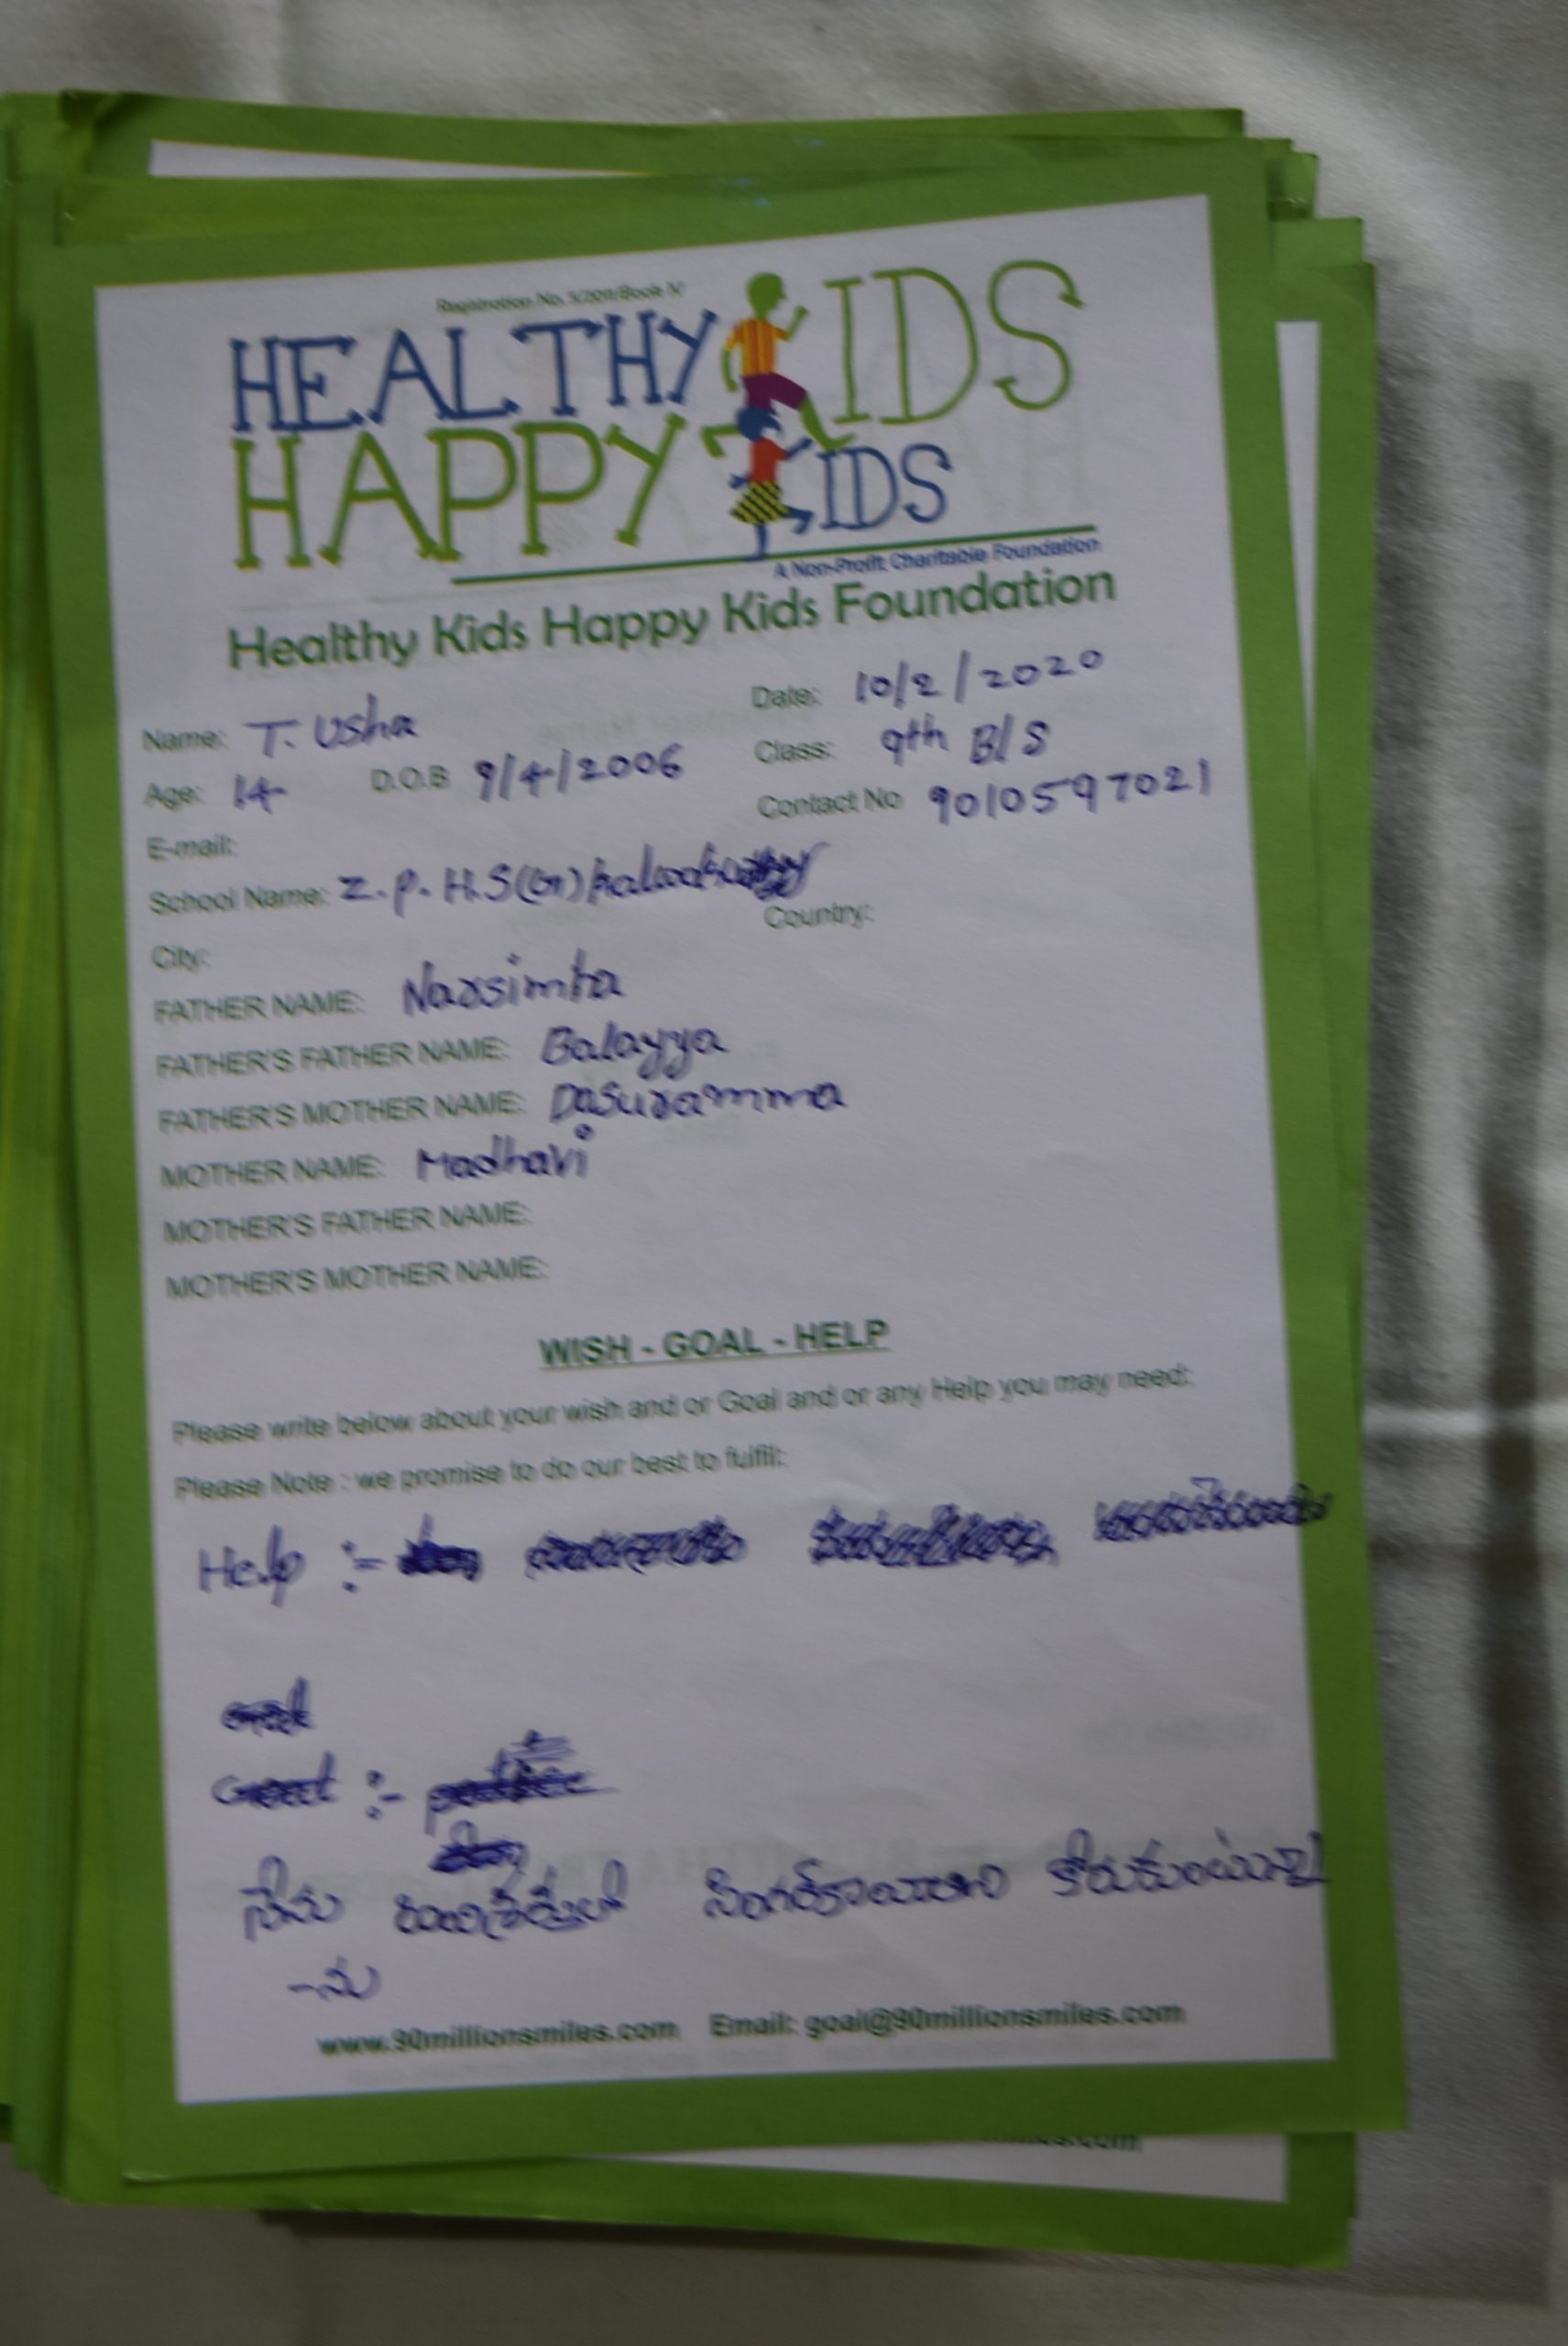 Registration No. 1/2011/Book IV
HEALTHY KIDS
HAPPY KIDS
A Non-Profit Charitable Foundation
Healthy Kids Happy Kids Foundation
Name: T. Usha Date: 10/2/2020
Age: 14 D.O.B 9/4/2006 Class: 9th B/S
E-mail: Contact No 9010597021
School Name: Z.P.H.S(G)
City: Country:
FATHER NAME: Narsimha
FATHER'S FATHER NAME: Balayya
FATHER'S MOTHER NAME: Dasuramma
MOTHER NAME: Madhavi
MOTHER'S FATHER NAME:
MOTHER'S MOTHER NAME:
WISH - GOAL - HELP
Please write below about your wish and or Goal and or any Help you may need:
Please Note : we promise to do our best to fulfil:
Help :-
:-
నేను సింగర్ కావాలని కోరుకుంటున్నా
-ను
www.90millionsmiles.com Email: goal@90millionsmiles.com